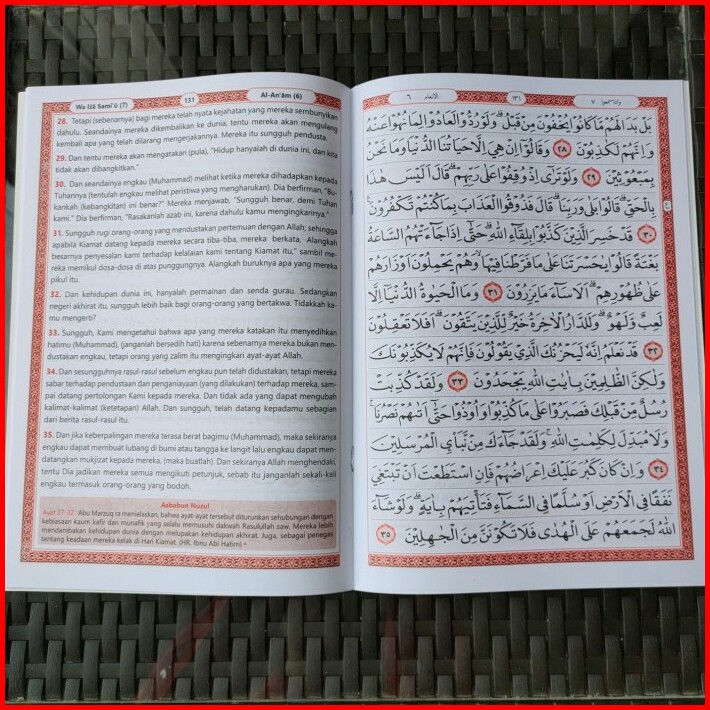 Wa Iżā Sami'ū (7)
131
Al-An'ām (6)
28. Tetapi (sebenarnya) bagi mereka telah nyata kejahatan yang mereka sembunyikan
dahulu. Seandainya mereka dikembalikan ke dunia, tentu mereka akan mengulang
kembali apa yang telah dilarang mengerjakannya. Mereka itu sungguh pendusta.
29. Dan tentu mereka akan mengatakan (pula), "Hidup hanyalah di dunia ini, dan kita
tidak akan dibangkitkan."
30. Dan seandainya engkau (Muhammad) melihat ketika mereka dihadapkan kepada
Tuhannya (tentulah engkau melihat peristiwa yang mengharukan). Dia berfirman, "Bu-
kankah (kebangkitan) ini benar?" Mereka menjawab, "Sungguh benar, demi Tuhan
kami." Dia berfirman, "Rasakanlah azab ini, karena dahulu kamu mengingkarinya."
31. Sungguh rugi orang-orang yang mendustakan pertemuan dengan Allah; sehingga
apabila Kiamat datang kepada mereka secara tiba-tiba, mereka berkata, Alangkah
besarnya penyesalan kami terhadap kelalaian kami tentang Kiamat itu," sambil me-
reka memikul dosa-dosa di atas punggungnya. Alangkah buruknya apa yang mereka
pikul itu.
32. Dan kehidupan dunia ini, hanyalah permainan dan senda gurau. Sedangkan
negeri akhirat itu, sungguh lebih baik bagi orang-orang yang bertakwa. Tidakkah ka-
mu mengerti?
33. Sungguh, Kami mengetahui bahwa apa yang mereka katakan itu menyedihkan
hatimu (Muhammad), (janganlah bersedih hati) karena sebenarnya mereka bukan men-
dustakan engkau, tetapi orang yang zalim itu mengingkari ayat-ayat Allah.
34. Dan sesungguhnya rasul-rasul sebelum engkau pun telah didustakan, tetapi mereka
sabar terhadap pendustaan dan penganiayaan (yang dilakukan) terhadap mereka, sam-
pai datang pertolongan Kami kepada mereka. Dan tidak ada yang dapat mengubah
kalimat-kalimat (ketetapan) Allah. Dan sungguh, telah datang kepadamu sebagian
dari berita rasul-rasul itu.
35. Dan jika keberpalingan mereka terasa berat bagimu (Muhammad), maka sekiranya
engkau dapat membuat lubang di bumi atau tangga ke langit lalu engkau dapat men-
datangkan mukjizat kepada mereka, (maka buatlah). Dan sekiranya Allah menghendaki,
tentu Dia jadikan mereka semua mengikuti petunjuk, sebab itu janganlah sekali-kali
engkau termasuk orang-orang yang bodoh.
Asbabun Nuzul
Ayat 27-32: Abu Marzuq ra menjelaskan, bahwa ayat-ayat tersebut diturunkan sehubungan dengan
kebiasaan kaum kafir dan munafik yang selalu memusuhi dakwah Rasulullah saw. Mereka lebih
mendambakan kehidupan dunia dengan melupakan kehidupan akhirat. Juga, sebagai penegas
tentang keadaan mereka kelak di Hari Kiamat. (HR. Ibnu Abi Hatim)
واذا سمعوا ٧
١٣١
الانعام ٦
بَلْ بَدَا لَهُمْ مَّا كَانُوْا يُخْفُوْنَ مِنْ قَبْلُ ۗ وَلَوْ رُدُّوْا لَعَادُوْا لِمَا نُهُوْا عَنْهُ
وَاِنَّهُمْ لَكٰذِبُوْنَ ٢٨ وَقَالُوْٓا اِنْ هِيَ اِلَّا حَيَاتُنَا الدُّنْيَا وَمَا نَحْنُ
بِمَبْعُوْثِيْنَ ٢٩ وَلَوْ تَرٰٓى اِذْ وُقِفُوْا عَلٰى رَبِّهِمْ ۗ قَالَ اَلَيْسَ هٰذَا
بِالْحَقِّ ۗ قَالُوْا بَلٰى وَرَبِّنَا ۗ قَالَ فَذُوْقُوا الْعَذَابَ بِمَا كُنْتُمْ تَكْفُرُوْنَ
٣٠ قَدْ خَسِرَ الَّذِيْنَ كَذَّبُوْا بِلِقَاۤءِ اللّٰهِ ۗ حَتّٰٓى اِذَا جَاۤءَتْهُمُ السَّاعَةُ
بَغْتَةً قَالُوْا يٰحَسْرَتَنَا عَلٰى مَا فَرَّطْنَا فِيْهَا ۙ وَهُمْ يَحْمِلُوْنَ اَوْزَارَهُمْ
عَلٰى ظُهُوْرِهِمْ ۗ اَلَا سَاۤءَ مَا يَزِرُوْنَ ٣١ وَمَا الْحَيٰوةُ الدُّنْيَآ اِلَّا
لَعِبٌ وَّلَهْوٌ ۗ وَلَلدَّارُ الْاٰخِرَةُ خَيْرٌ لِّلَّذِيْنَ يَتَّقُوْنَ ۗ اَفَلَا تَعْقِلُوْنَ
٣٢ قَدْ نَعْلَمُ اِنَّهٗ لَيَحْزُنُكَ الَّذِيْ يَقُوْلُوْنَ فَاِنَّهُمْ لَا يُكَذِّبُوْنَكَ
وَلٰكِنَّ الظّٰلِمِيْنَ بِاٰيٰتِ اللّٰهِ يَجْحَدُوْنَ ٣٣ وَلَقَدْ كُذِّبَتْ
رُسُلٌ مِّنْ قَبْلِكَ فَصَبَرُوْا عَلٰى مَا كُذِّبُوْا وَاُوْذُوْا حَتّٰٓى اَتٰىهُمْ نَصْرُنَا ۚ
وَلَا مُبَدِّلَ لِكَلِمٰتِ اللّٰهِ ۚ وَلَقَدْ جَاۤءَكَ مِنْ نَّبَإِ۟ى الْمُرْسَلِيْنَ
٣٤ وَاِنْ كَانَ كَبُرَ عَلَيْكَ اِعْرَاضُهُمْ فَاِنِ اسْتَطَعْتَ اَنْ تَبْتَغِيَ
نَفَقًا فِى الْاَرْضِ اَوْ سُلَّمًا فِى السَّمَاۤءِ فَتَأْتِيَهُمْ بِاٰيَةٍ ۗ وَلَوْ شَاۤءَ
اللّٰهُ لَجَمَعَهُمْ عَلَى الْهُدٰى فَلَا تَكُوْنَنَّ مِنَ الْجٰهِلِيْنَ ٣٥